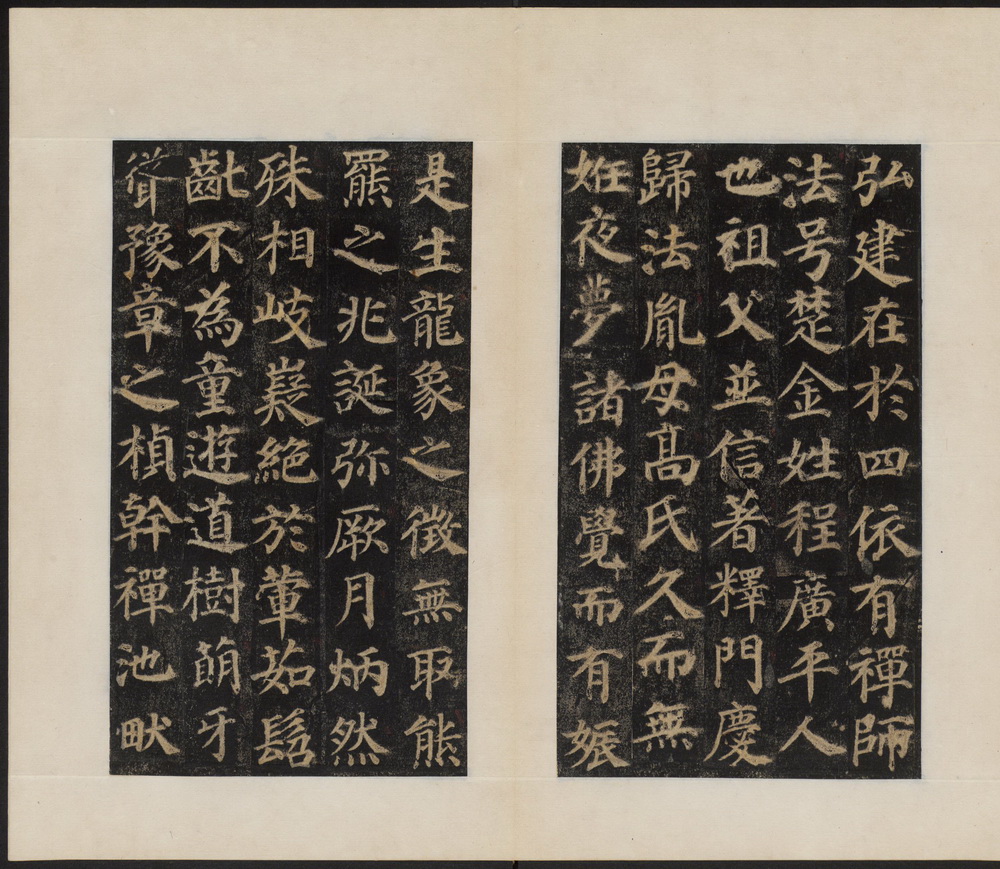 弘建在於四依有禪師
法号楚金姓程廣平人
也祖父並信著釋門慶
歸法胤母髙氏久而無
姙夜夢諸佛覺而有娠
是生龍象之徵無取熊
羆之兆誕弥厥月炳然
殊相岐嶷絕於葷茹髫
齓不為童遊道樹萠牙
聳豫章之楨幹禪池畎